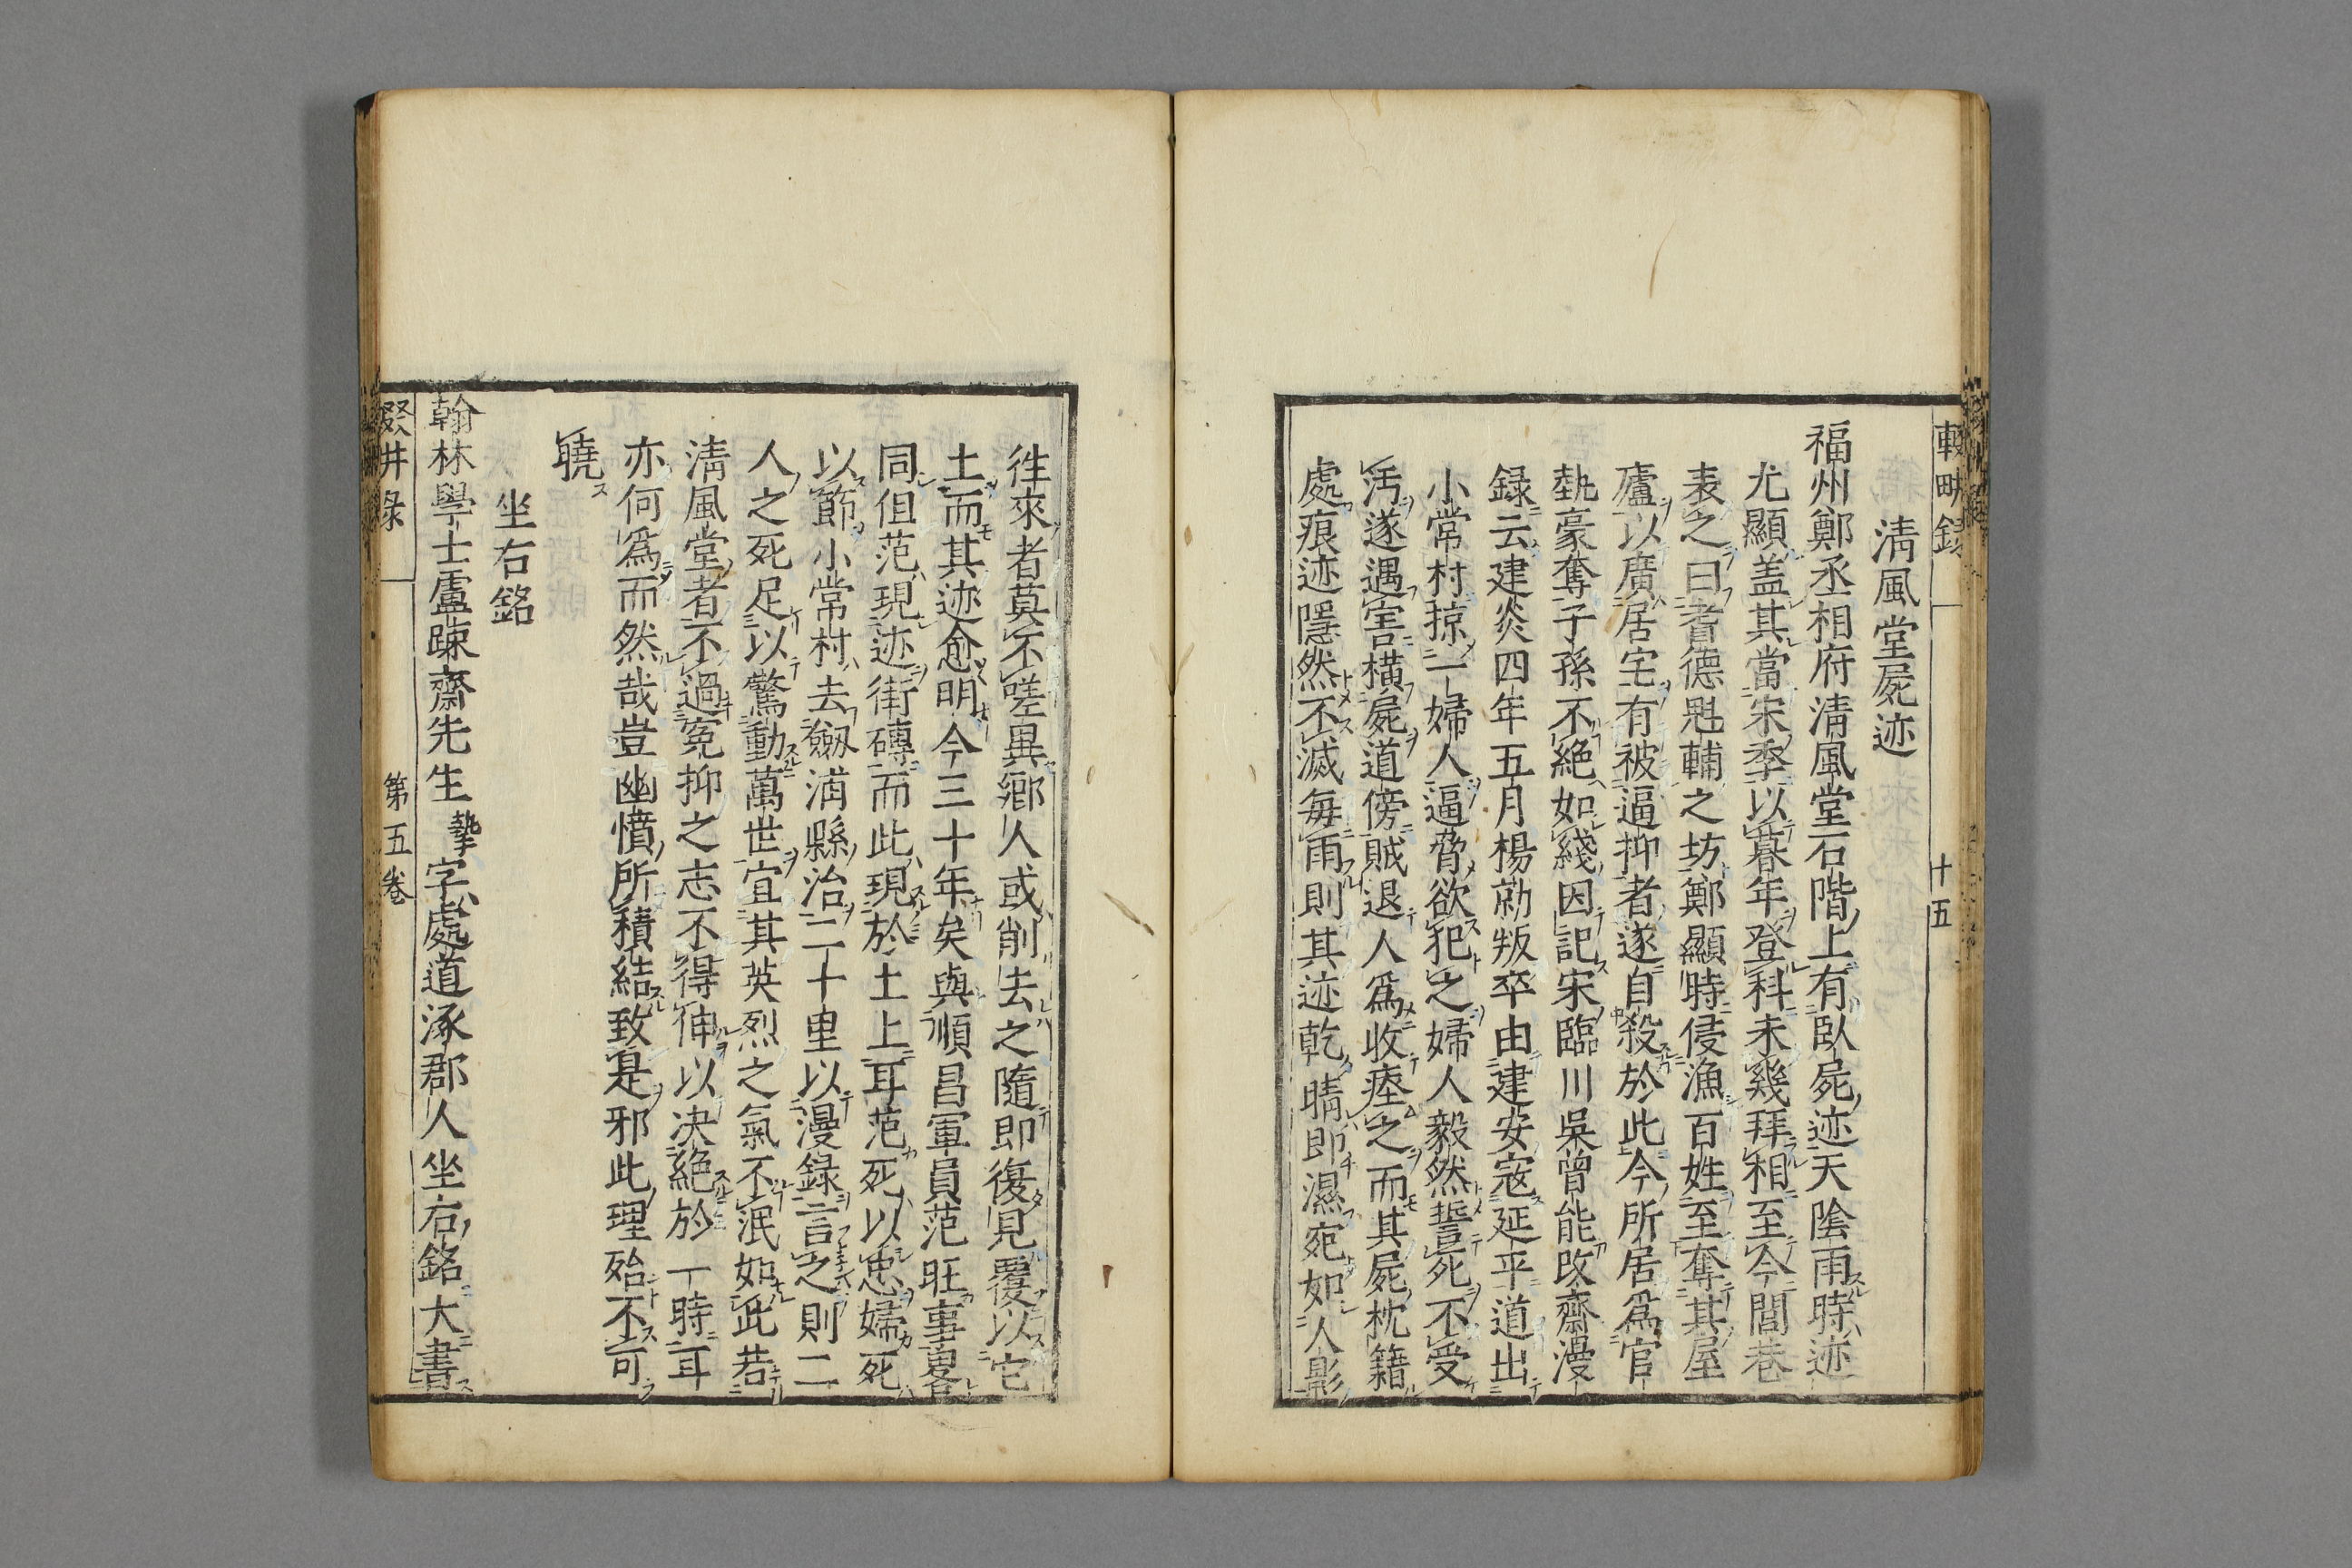 輟畊録
十五
淸風堂屍迹
福州鄭丞相府淸風堂石階上有臥屍迹天陰雨時迹
尤顯盖其當宋季以暮年登科未幾拜相至今閭巷
表之曰耆德魁輔之坊鄭顯時侵漁百姓至奪其屋
廬以廣居宅有被逼抑者遂自殺於此今所居爲官
埶豪奪子孫不絶如綫因記宋臨川吳曾能改齋漫
録云建炎四年五月楊勍叛卒由建安寇延平道出
小常村掠一婦人逼脅欲犯之婦人毅然誓死不受
汚遂遇害橫屍道傍賊退人爲收瘞之而其屍枕籍
處痕迹隱然不滅每雨則其迹乾晴即濕宛如人影
徃來者莫不嗟異鄉人或削去之隨即復見覆以它
土而其迹愈明今三十年矣與順昌軍員范旺事畧
同但范現迹街磚而此現於土上耳范死以忠婦死
以節小常村去劒浦縣治二十里以漫録言之則二
人之死足以驚動萬世宜其英烈之氣不泯如此若
淸風堂者不過寃抑之志不得伸以决絶於一時耳
亦何爲而然哉豈幽憤所積結致是邪此理殆不可
曉
坐右銘
翰林學士盧踈齋先生摯字處道涿郡人坐右銘大書
輟井录
第五卷